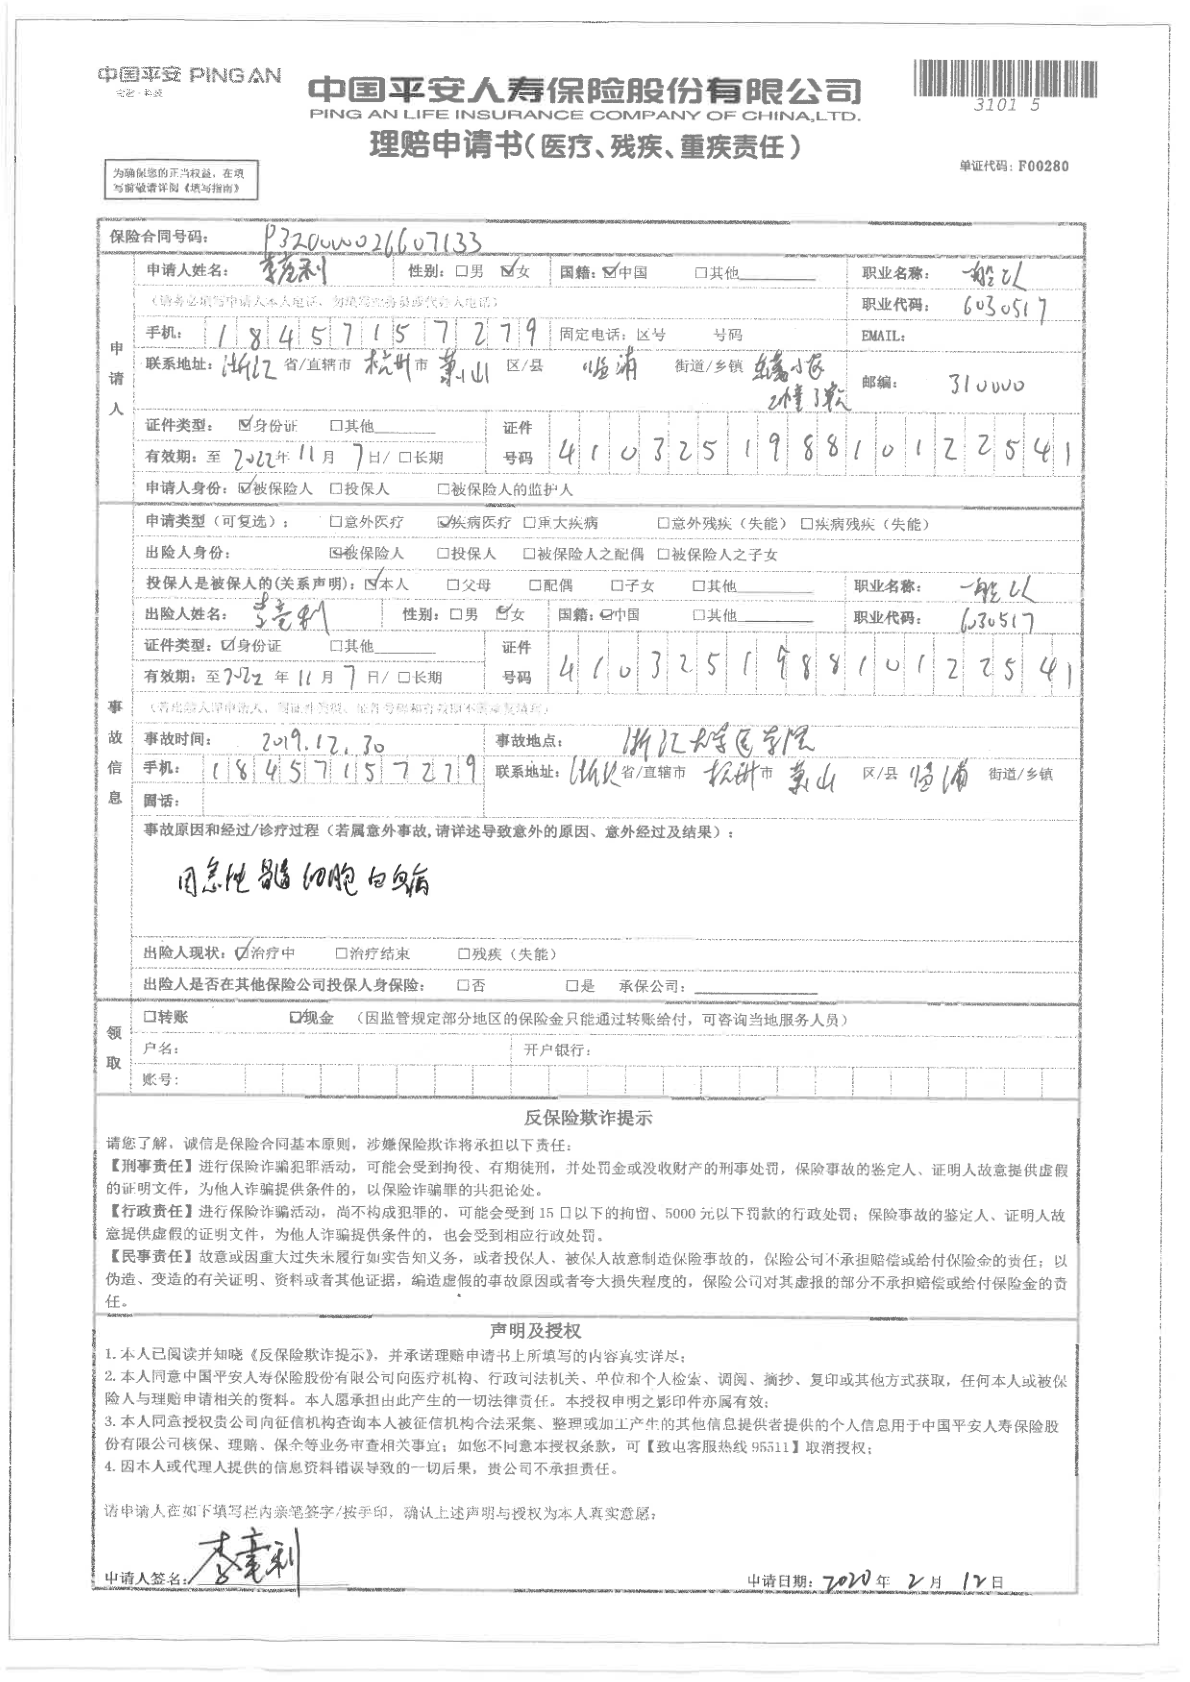 中国平安 PING AN
金融·科技
中国平安人寿保险股份有限公司
PING AN LIFE INSURANCE COMPANY OF CHINA,LTD.
理赔申请书(医疗、残疾、重疾责任)
3101 5
单证代码: F00280
为确保您的正当权益，在填
写前敬请详阅《填写指南》
保险合同号码: P320000026607133
申请人
申请人姓名: 李亮利 性别: □男 ☑女 国籍: ☑中国 □其他 职业名称: 一般
(请务必填写申请人本人电话，勿填写业务员或代办人电话) 职业代码: 6030517
手机: 18457157279 固定电话: 区号 号码 EMAIL:
联系地址: 浙江 省/直辖市 杭州 市 萧山 区/县 临浦 街道/乡镇 小区 邮编: 310000
证件类型: ☑身份证 □其他 证件号码 410325198810122541
有效期: 至 2022年 11 月 7 日/ □长期
申请人身份: ☑被保险人 □投保人 □被保险人的监护人
事故信息
申请类型（可复选）: □意外医疗 ☑疾病医疗 □重大疾病 □意外残疾（失能） □疾病残疾（失能）
出险人身份: ☑被保险人 □投保人 □被保险人之配偶 □被保险人之子女
投保人是被保人的(关系声明): ☑本人 □父母 □配偶 □子女 □其他 职业名称: 一般
出险人姓名: 李亮利 性别: □男 ☑女 国籍: ☑中国 □其他 职业代码: 6030517
证件类型: ☑身份证 □其他 证件号码 410325198810122541
有效期: 至2022 年 11 月 7 日/ □长期
(若出险人即申请人，则证件类型、证件号码和有效期不需重复填写)
事故时间: 2019.12.30 事故地点: 浙江大学医学院
手机: 18457157279 联系地址: 浙江 省/直辖市 杭州 市 萧山 区/县 临浦 街道/乡镇
固话:
事故原因和经过/诊疗过程（若属意外事故,请详述导致意外的原因、意外经过及结果）:
因急性髓细胞白血病
出险人现状: ☑治疗中 □治疗结束 □残疾（失能）
出险人是否在其他保险公司投保人身保险: □否 □是 承保公司:
领取
□转账 ☑现金 （因监管规定部分地区的保险金只能通过转账给付，可咨询当地服务人员）
户名: 开户银行:
账号:
反保险欺诈提示
请您了解，诚信是保险合同基本原则，涉嫌保险欺诈将承担以下责任:
【刑事责任】进行保险诈骗犯罪活动，可能会受到拘役、有期徒刑，并处罚金或没收财产的刑事处罚，保险事故的鉴定人、证明人故意提供虚假
的证明文件，为他人诈骗提供条件的，以保险诈骗罪的共犯论处。
【行政责任】进行保险诈骗活动，尚不构成犯罪的，可能会受到 15 日以下的拘留、5000 元以下罚款的行政处罚；保险事故的鉴定人、证明人故
意提供虚假的证明文件，为他人诈骗提供条件的，也会受到相应行政处罚。
【民事责任】故意或因重大过失未履行如实告知义务，或者投保人、被保人故意制造保险事故的，保险公司不承担赔偿或给付保险金的责任；以
伪造、变造的有关证明、资料或者其他证据，编造虚假的事故原因或者夸大损失程度的，保险公司对其虚报的部分不承担赔偿或给付保险金的责
任。
声明及授权
1. 本人已阅读并知晓《反保险欺诈提示》，并承诺理赔申请书上所填写的内容真实详尽；
2. 本人同意中国平安人寿保险股份有限公司向医疗机构、行政司法机关、单位和个人检索、调阅、摘抄、复印或其他方式获取，任何本人或被保
险人与理赔申请相关的资料。本人愿承担由此产生的一切法律责任。本授权申明之影印件亦属有效；
3. 本人同意授权贵公司向征信机构查询本人被征信机构合法采集、整理或加工产生的其他信息提供者提供的个人信息用于中国平安人寿保险股
份有限公司核保、理赔、保全等业务审查相关事宜；如您不同意本授权条款，可【致电客服热线 95511】取消授权；
4. 因本人或代理人提供的信息资料错误导致的一切后果，贵公司不承担责任。
请申请人在如下填写栏内亲笔签字/按手印，确认上述声明与授权为本人真实意愿；
申请人签名: 李亮利 申请日期: 2020 年 2 月 12 日